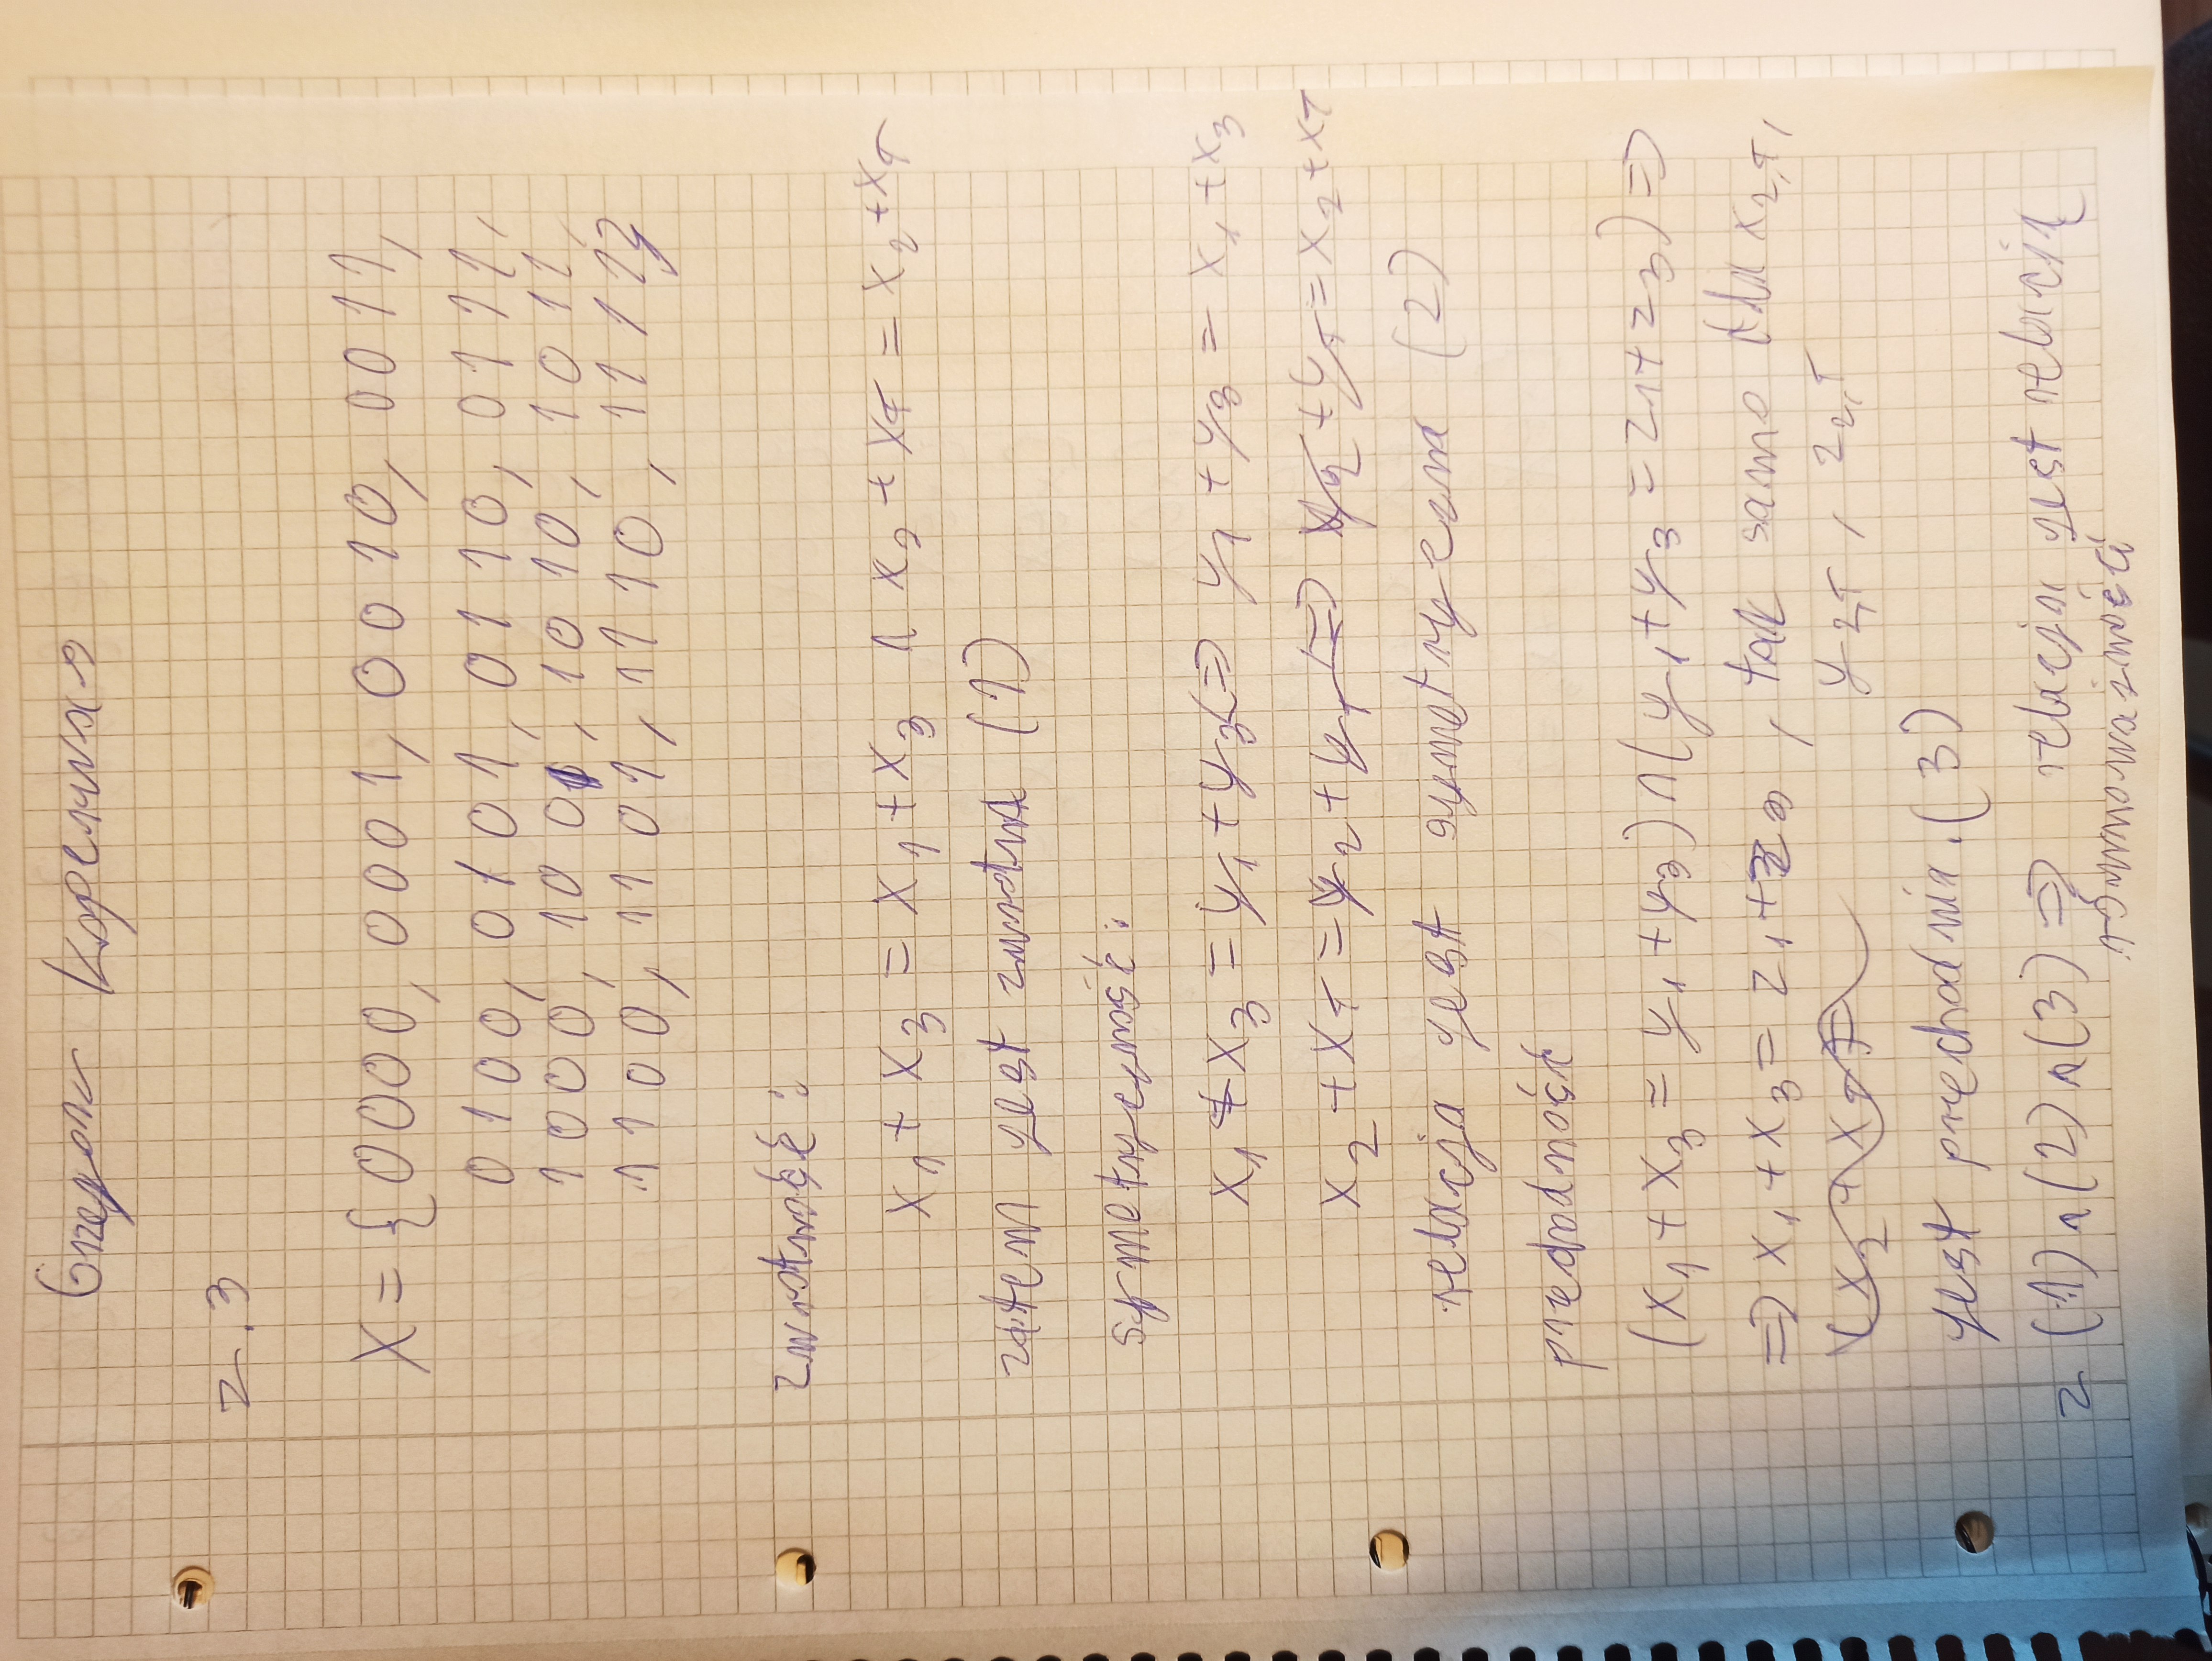 Grzegorz Koperwas
z. 3
X = {0000, 0001, 0010, 0011,
0100, 0101, 0110, 0111,
1000, 1001, 1010, 1011,
1100, 1101, 1110, 1111}
zwrotność:
x₁ + x₃ = x₁ + x₃ ∧ x₂ + x₄ = x₂ + x₄
zatem jest zwrotna (1)
symetryczność:
x₁ + x₃ = y₁ + y₃ ⇔ y₁ + y₃ = x₁ + x₃
x₂ + x₄ = y₂ + y₄ ⇔ y₂ + y₄ = x₂ + x₄
relacja jest symetryczna (2)
przechodność
(x₁ + x₃ = y₁ + y₃) ∧ (y₁ + y₃ = z₁ + z₃) ⇒
⇒ x₁ + x₃ = z₁ + z₃, tak samo dla x₂,₄,
y₂,₄, z₂,₄
jest przechodnia. (3)
z (1) ∧ (2) ∧ (3) ⇒ relacja jest relacją
równoważności